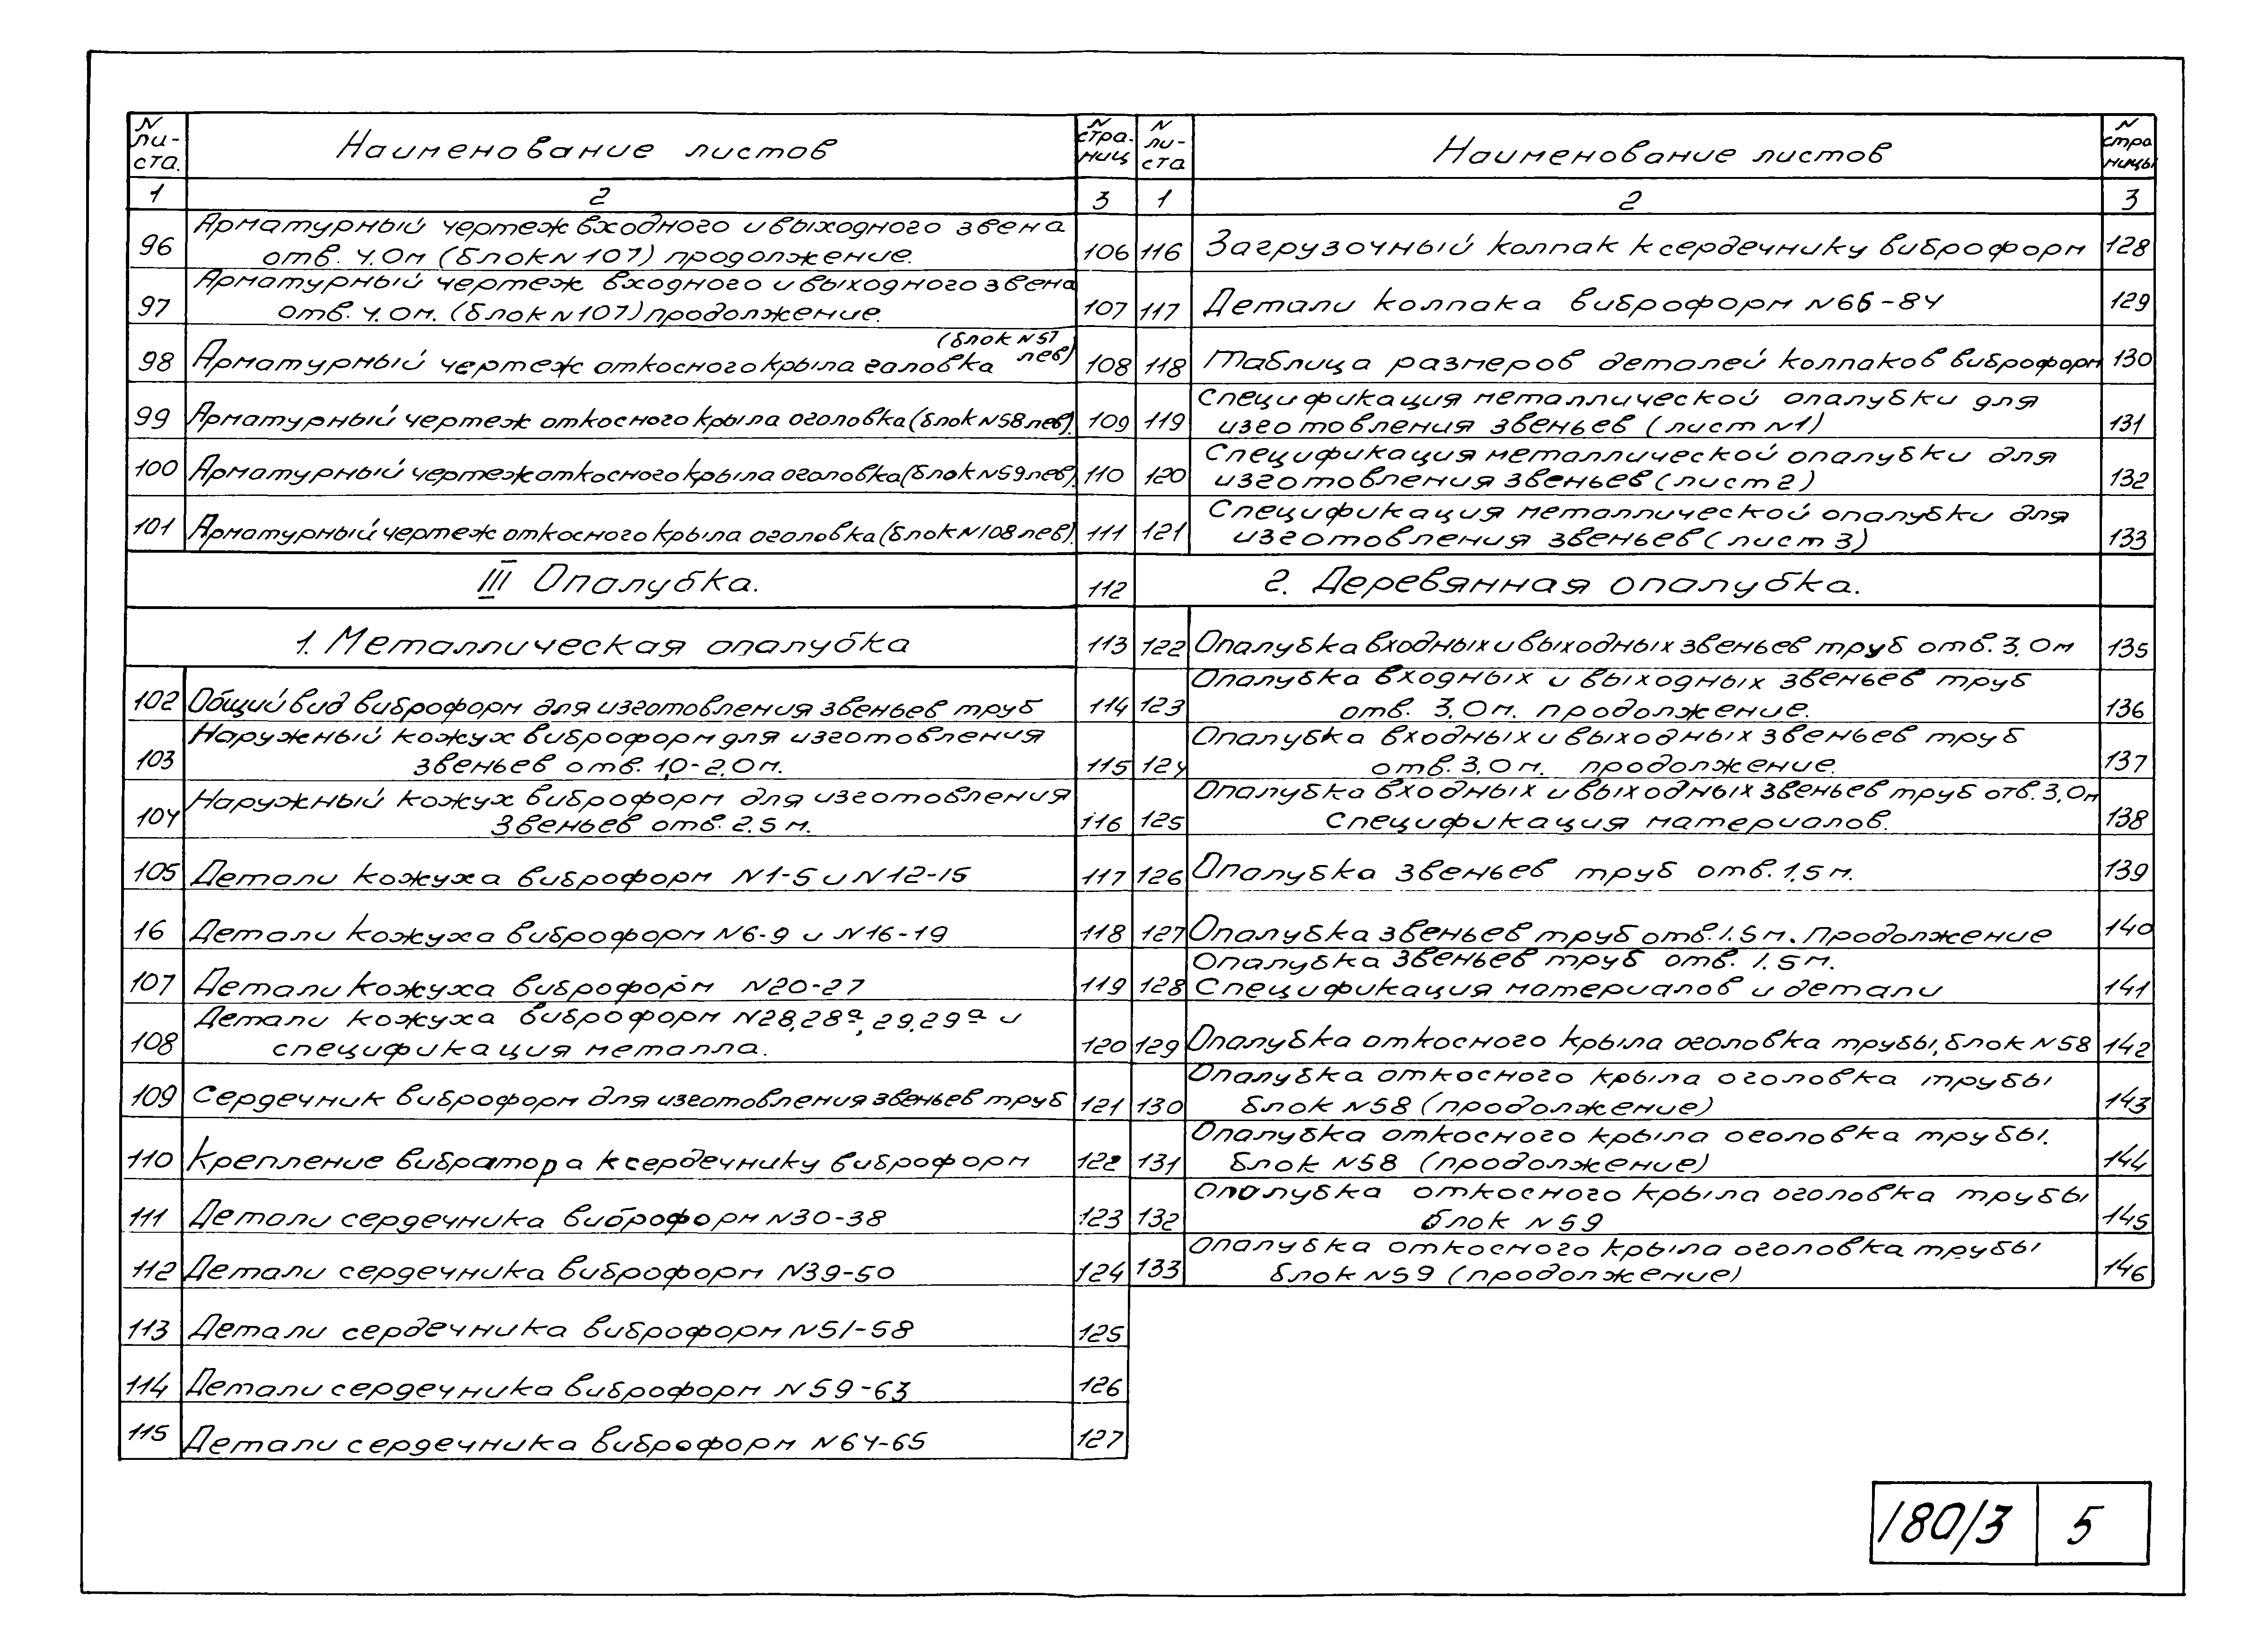 N ли- ста.
Наименование листов
N стра- ниц
1
2
3
96 Арматурный чертеж входного и выходного звена
отв. 4.0м (блок N 107) продолжение. 106
97 Арматурный чертеж входного и выходного звена
отв. 4.0м. (блок N 107) продолжение. 107
(блок N 57
98 Арматурный чертеж откосного крыла головка лев) 108
99 Арматурный чертеж откосного крыла оголовка (блок N 58 лев). 109
100 Арматурный чертеж откосного крыла оголовка (блок N 59 лев) 110
101 Арматурный чертеж откосного крыла оголовка (блок N 108 лев). 111
III Опалубка. 112
1. Металлическая опалубка 113
102 Общий вид виброформ для изготовления звеньев труб 114
103 Наружный кожух виброформ для изготовления
звеньев отв. 1,0-2,0м. 115
104 Наружный кожух виброформ для изготовления
звеньев отв. 2.5 м. 116
105 Детали кожуха виброформ N1-5 и N12-15 117
16 Детали кожуха виброформ N6-9 и N16-19 118
107 Детали кожуха виброформ N20-27 119
108 Детали кожуха виброформ N28,28а, 29,29а и
спецификация металла. 120
109 Сердечник виброформ для изготовления звеньев труб 121
110 Крепление вибратора к сердечнику виброформ 122
111 Детали сердечника виброформ N30-38 123
112 Детали сердечника виброформ N39-50 124
113 Детали сердечника виброформ N51-58 125
114 Детали сердечника виброформ N59-63 126
115 Детали сердечника виброформ N64-65 127
N ли- ста
Наименование листов
N стра ницы
1
2
3
116 Загрузочный колпак к сердечнику виброформ 128
117 Детали колпака виброформ N66-84 129
118 Таблица размеров деталей колпаков виброформ 130
119 Спецификация металлической опалубки для
изготовления звеньев (лист N1) 131
120 Спецификация металлической опалубки для
изготовления звеньев (лист 2) 132
121 Спецификация металлической опалубки для
изготовления звеньев (лист 3) 133
2. Деревянная опалубка.
122 Опалубка входных и выходных звеньев труб отв. 3,0м 135
123 Опалубка входных и выходных звеньев труб
отв. 3,0м. продолжение. 136
124 Опалубка входных и выходных звеньев труб
отв. 3,0м. продолжение. 137
125 Опалубка входных и выходных звеньев труб отв. 3,0м
спецификация материалов. 138
126 Опалубка звеньев труб отв. 1,5 м. 139
127 Опалубка звеньев труб отв. 1.5 м. Продолжение 140
128 Опалубка звеньев труб отв. 1.5 м.
Спецификация материалов и детали 141
129 Опалубка откосного крыла оголовка трубы, блок N58 142
130 Опалубка откосного крыла оголовка трубы
блок N58 (продолжение) 143
131 Опалубка откосного крыла оголовка трубы.
блок N58 (продолжение) 144
132 Опалубка откосного крыла оголовка трубы
блок N59 145
133 Опалубка откосного крыла оголовка трубы
блок N59 (продолжение) 146
180/3 5